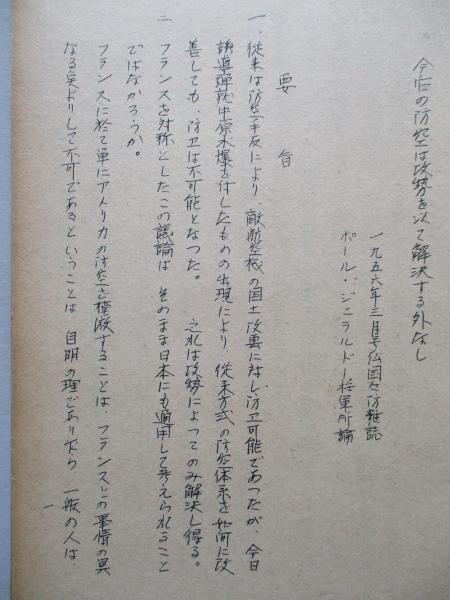 今后の防空は攻勢を以て解決する外なし
一九五六年三月号仏国々防雑誌
ポール・ジエラルドー将軍所論
要旨
一、従来は防空手段により、敵航空機の国土攻撃に対し防卫可能であつたが、今日
誘導弾就中原水爆を付したものの出現により、従来方式の防空体系を如何に改
善しても、防卫は不可能となつた。之れは攻勢によつてのみ解決し得る。
二 フランスを対称としたこの議論は そのまま日本にも適用して考えられること
ではなかろうか。
フランスに於て単にアメリカの防空を模倣することは、フランスとの事情の異
なる点よりして不可であるということは 自明の理であり乍ら 一般の人は、
一